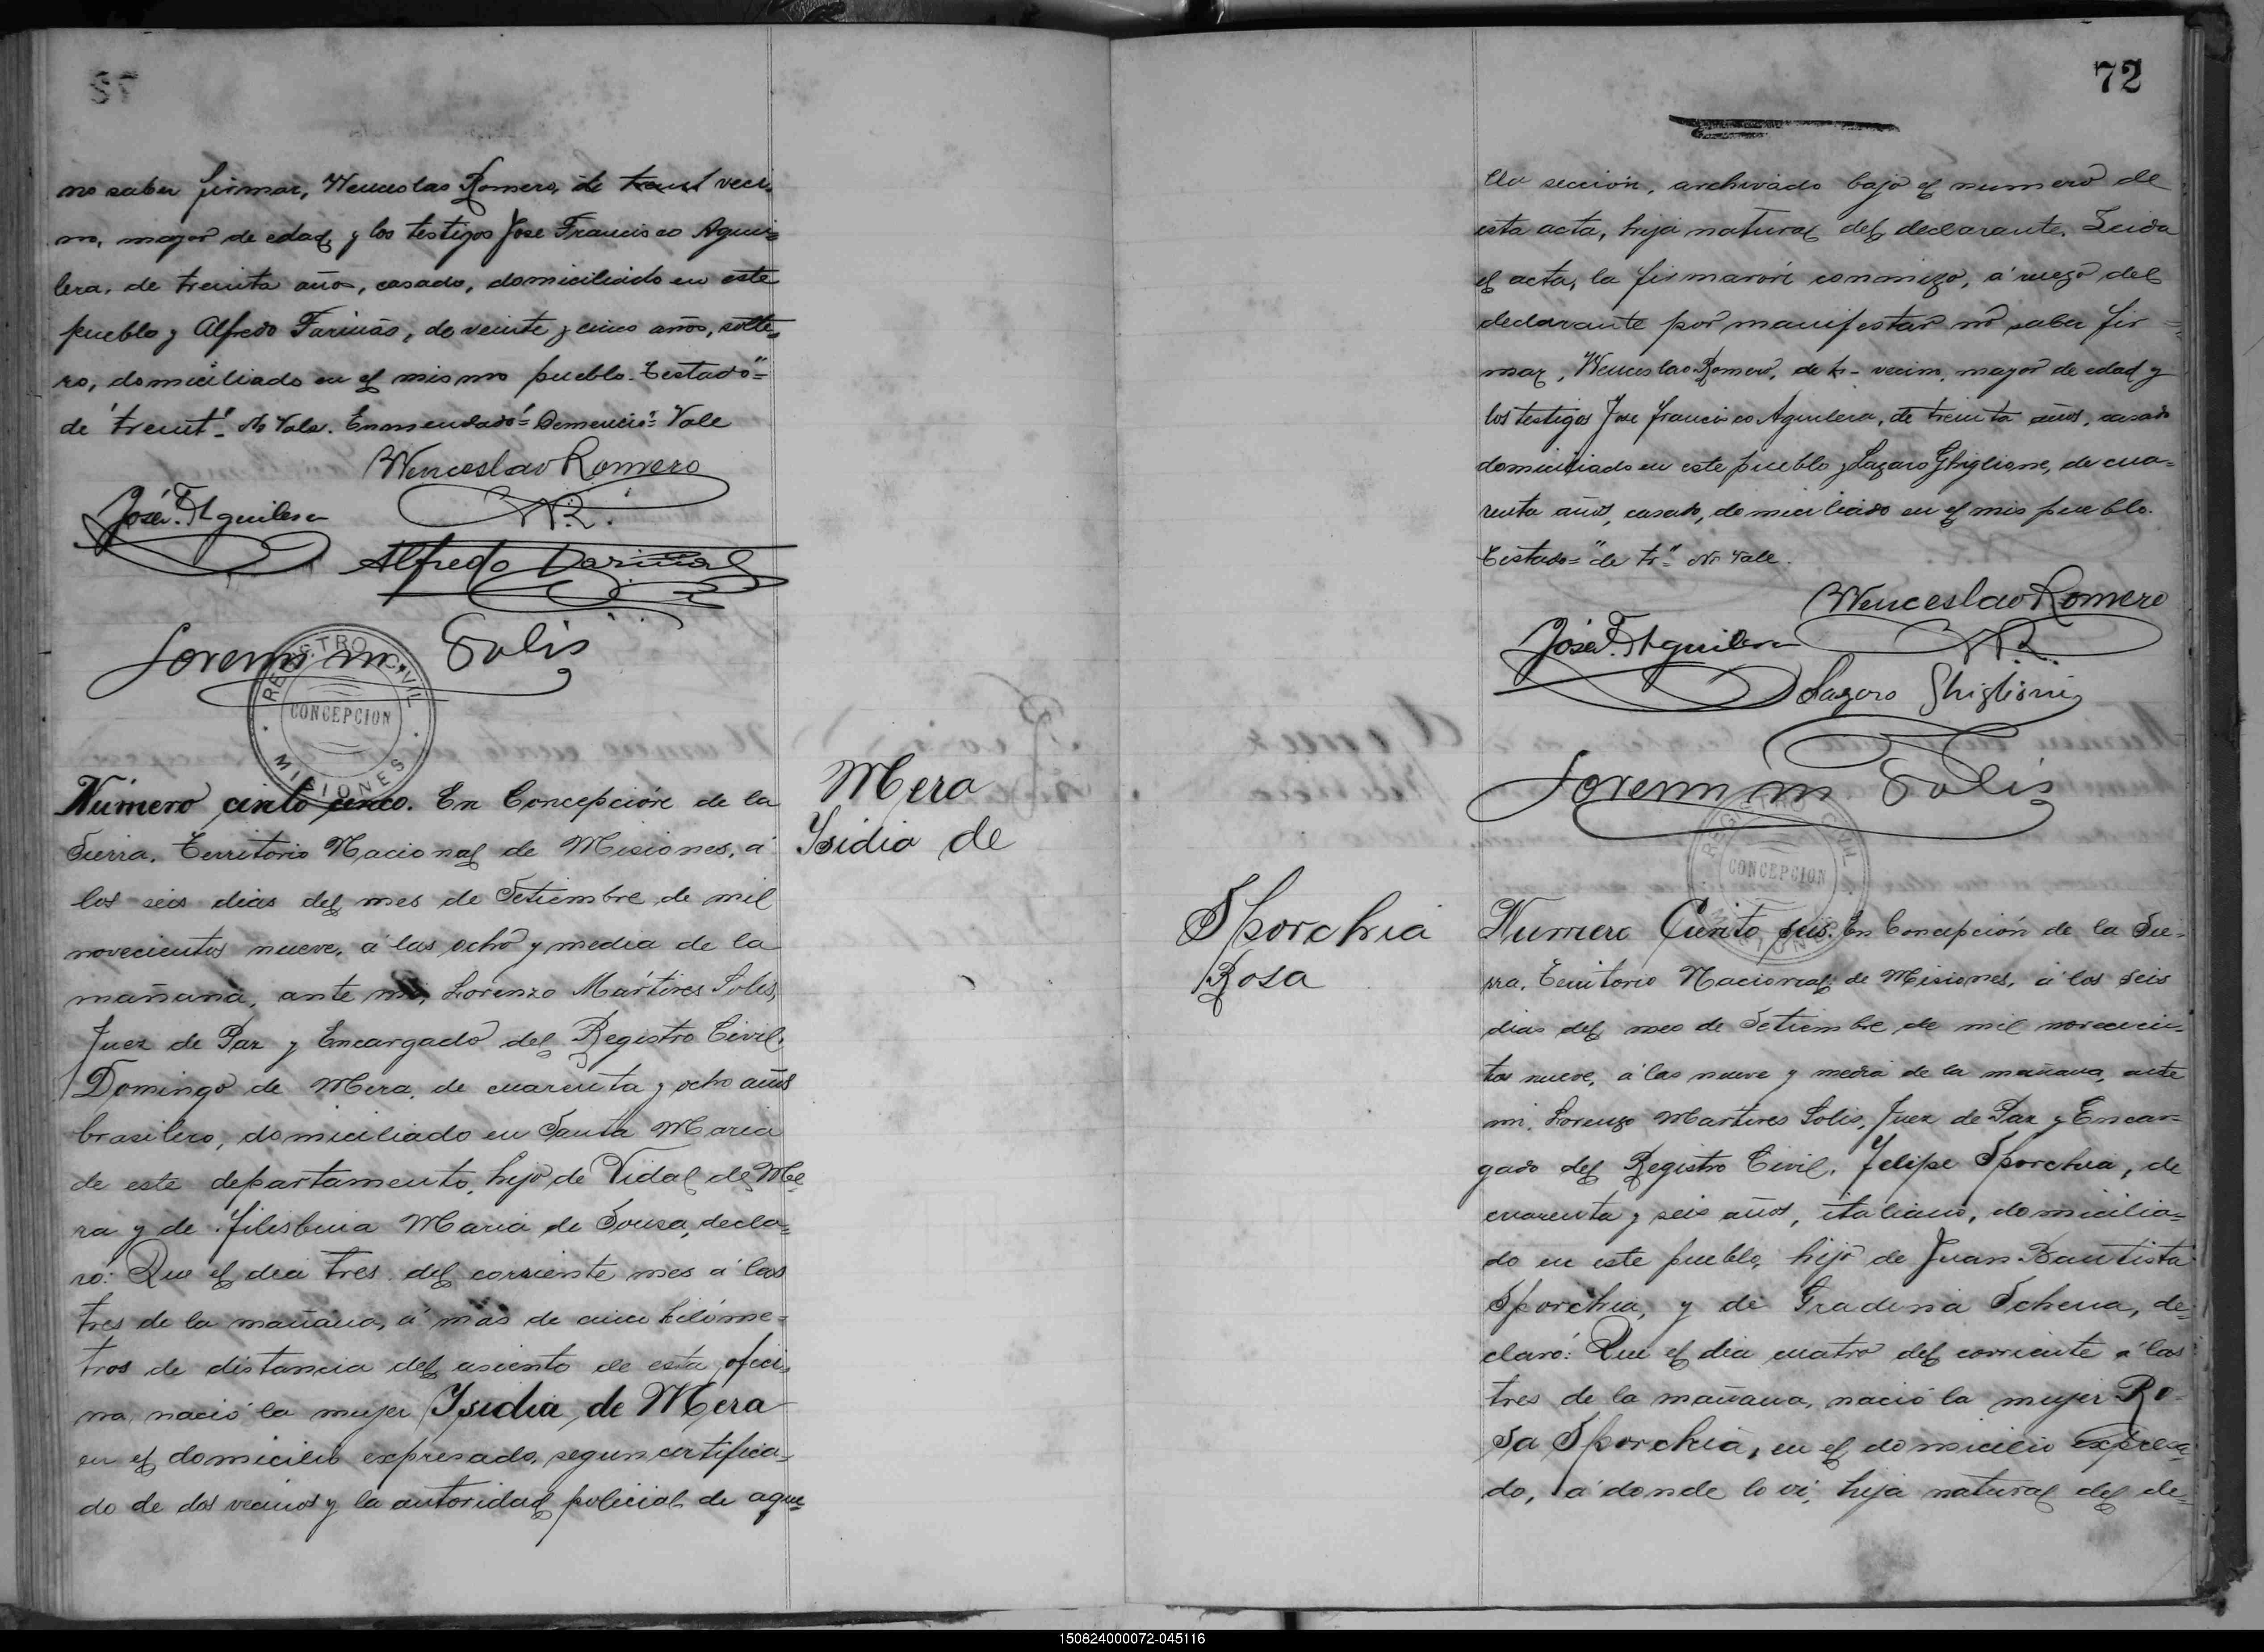 no saber firmar, Wenceslao Romero, de treint veci-
no, mayor de edad y los testigos Jose Francisco Agui=
lera, de treinta años, casado, domiciliado en este
pueblo y Alfredo Fariñas, de veinte y cinco años, solte=
ro, domiciliado en el mismo pueblo. Testado="
de treint"= No Vale. Enmendado= Demencio= Vale
Wenceslao Romero
W.R.
José F. Aguilera
Alfredo Fariñas
Lorenzo M. Solis
REGISTRO CIVIL
CONCEPCION
MISIONES
Número ciento cinco. En Concepción de la
Sierra, Territorio Nacional de Misiones, á
los seis dias del mes de Setiembre de mil
novecientos nueve, á las ocho y media de la
mañana, ante mi, Lorenzo Mártires Solis,
Juez de Paz y Encargado del Registro Civil,
Domingo de Mera, de cuarenta y ocho años
brasilero, domiciliado en Santa Maria
de este departamento, hijo de Vidal de Me=
ra y de Maria de Sousa, decla=
ró: Que el dia tres del corriente mes á las
tres de la mañana, á más de cinco kilóme=
tros de distancia del asiento de esta ofici-
na, nació la mujer Ysidia de Mera
en el domicilio expresado, segun certifica-
do de dos vecinos y la autoridad policial de aque=
Mera
Ysidia de
72
lla sección, archivado bajo el numero de
esta acta, hija natural del declarante. Leida
el acta, la firmaron conmigo, á ruego del
declarante por manifestar no saber fir=
mar, Wenceslao Romero, de tr- vecino, mayor de edad y
los testigos Jose Francisco Aguilera, de treinta años, casado
domiciliado en este pueblo y Lazaro Ghiglione, de cua=
renta años, casado, domiciliado en el mis pueblo.
Testado="de tr"= No Vale.
Wenceslao Romero
W.R.
José F. Aguilera
Lazaro Ghiglioni
Lorenzo M. Solis
REGISTRO CIVIL
CONCEPCION
MISIONES
Sporchia
Rosa
Numero Ciento seis. En Concepción de la Sie-
rra, Territorio Nacional de Misiones, á los seis
dias del mes de Setiembre de mil novecien=
tos nueve, á las nueve y media de la mañana, ante
mi, Lorenzo Martires Solis, Juez de Paz y Encar=
gado del Registro Civil, Felipe Sporchia, de
cuarenta y seis años, italiano, domicilia=
do en este pueblo, hijo de Juan Bautista
Sporchia, y de Schena, de=
claró: Que el dia cuatro del corriente á las
tres de la mañana, nació la mujer Ro-
sa Sporchia, en el domicilio expresa=
do, á donde lo vi, hija natural del de=
150824000072-045116